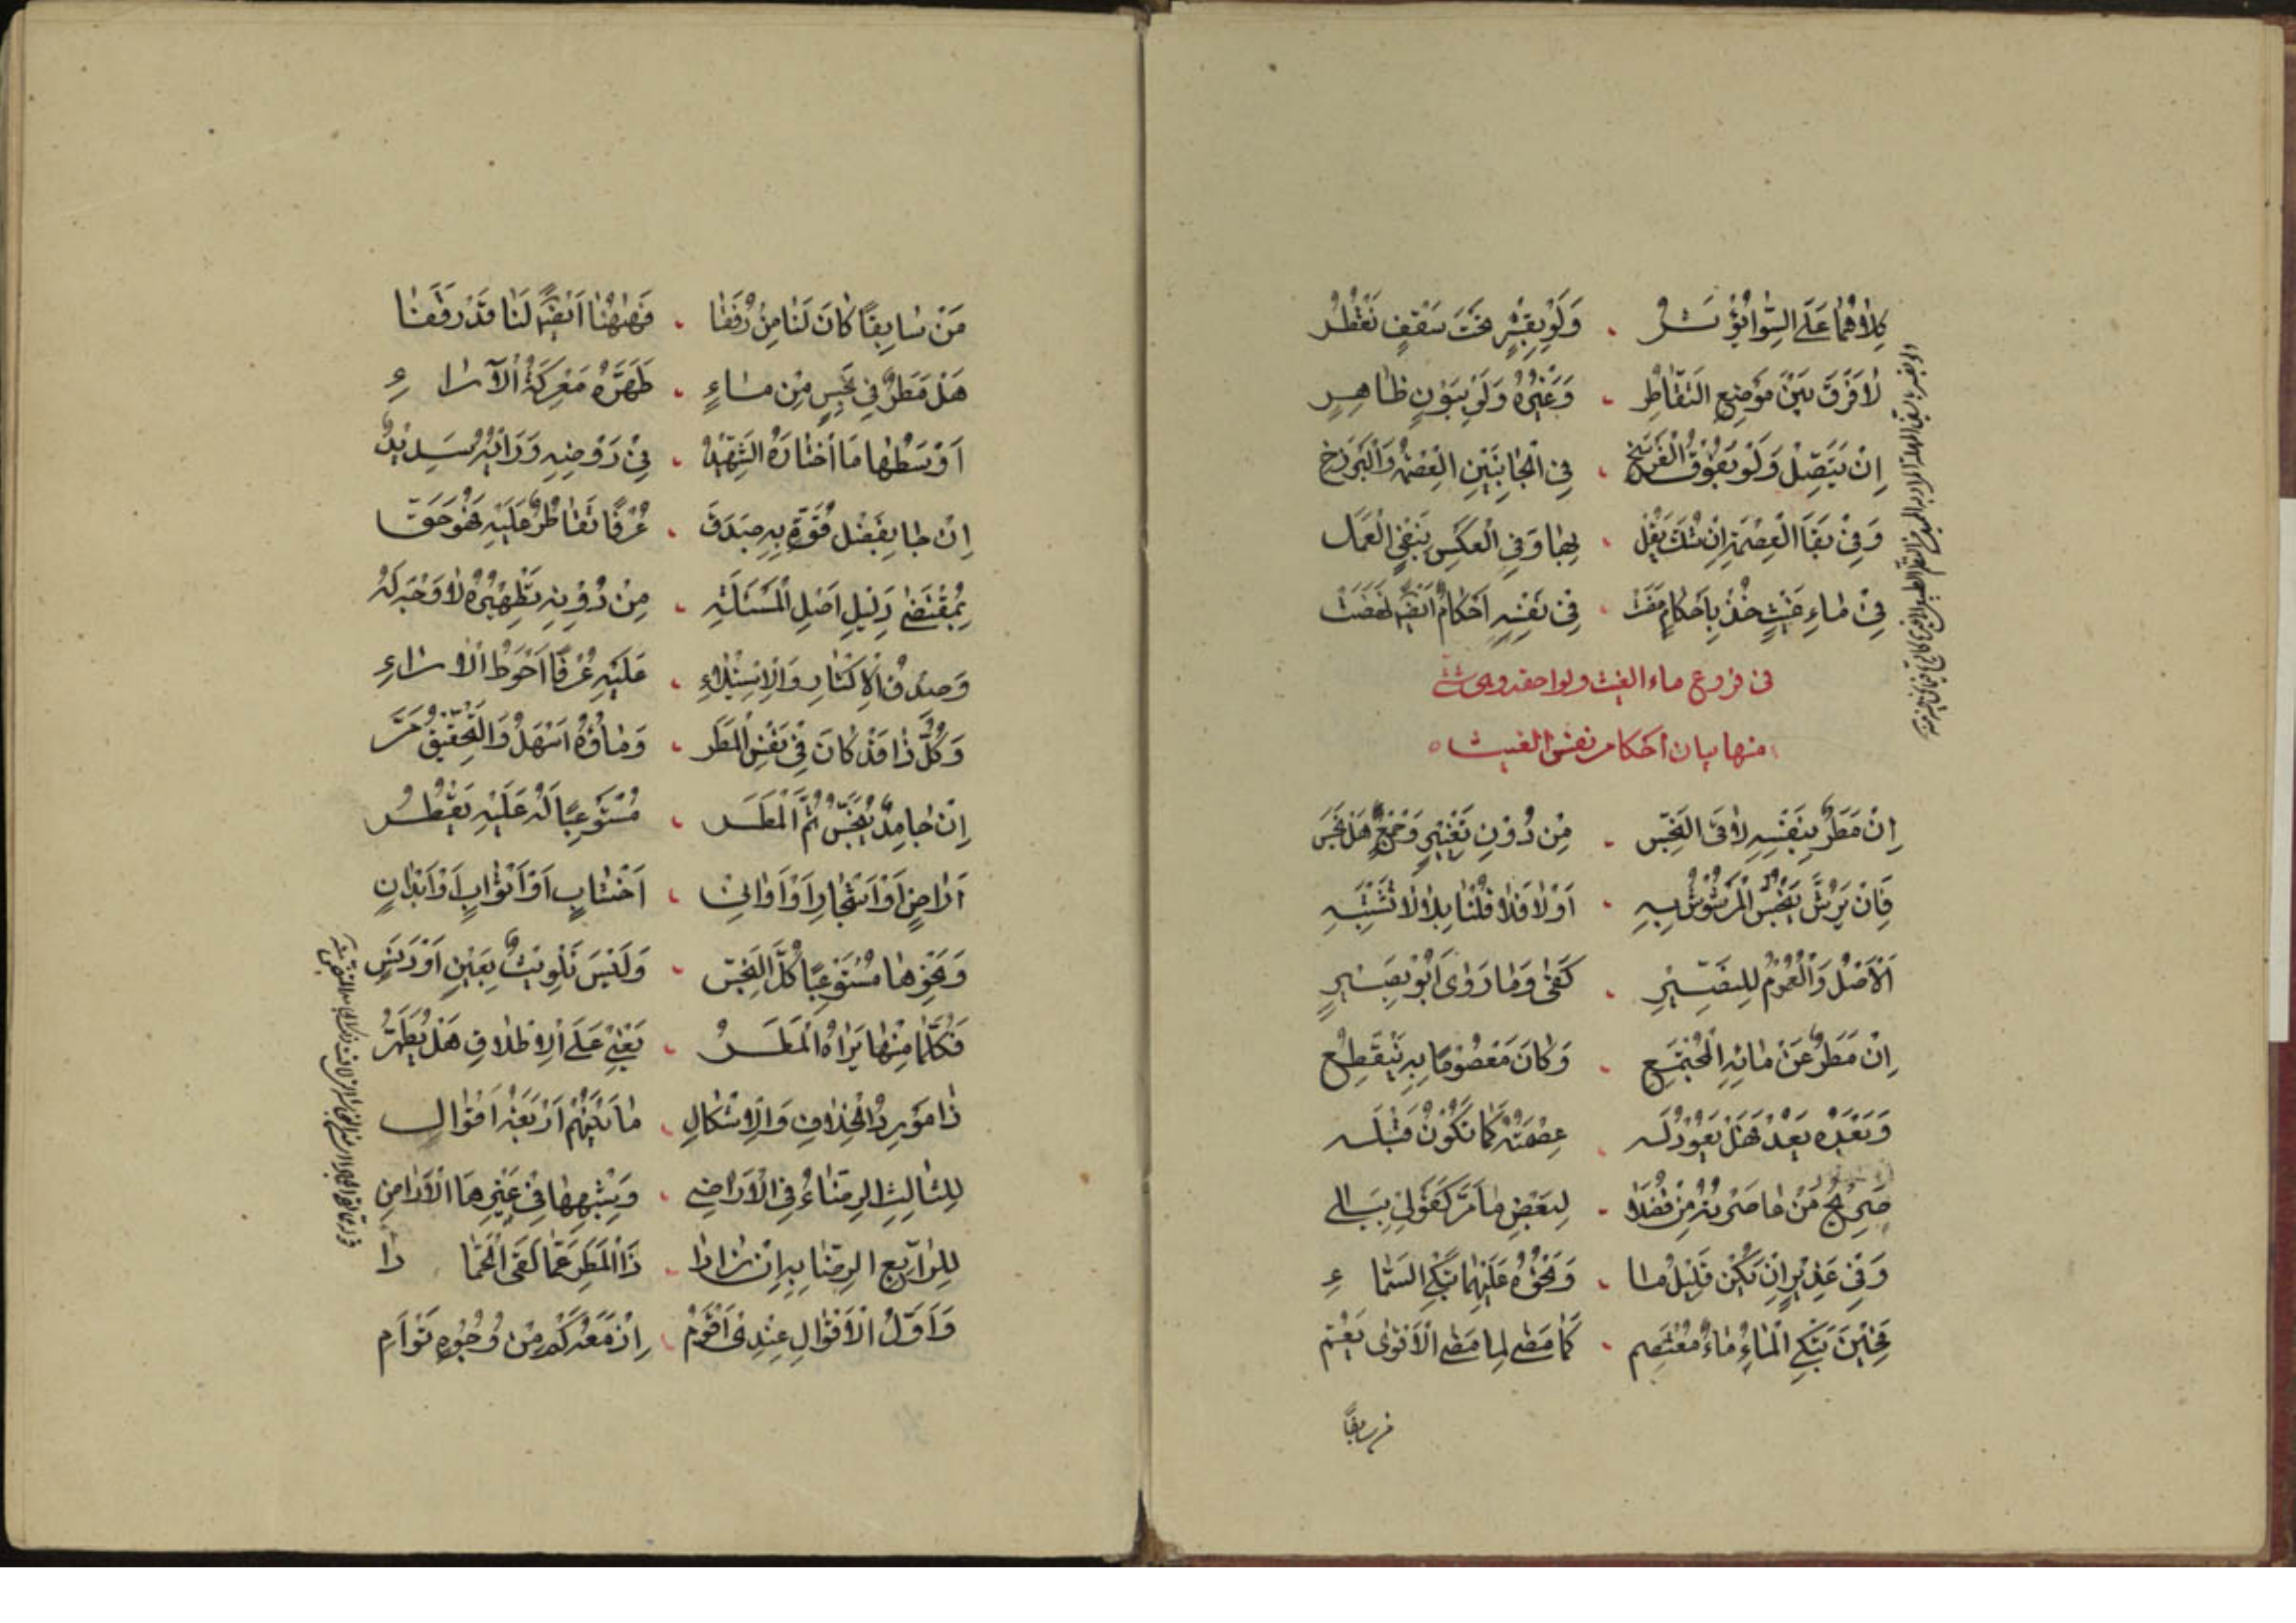 كِلاهُما عَلَى السَّوا يُؤَثِّرُ ٠ وَلَوْ بِقِسْرٍ تَحْتَ سَقْفٍ تَقْطُرُ
لا فَرْقَ بَيْنَ مَوْضِعِ التَّقاطُرِ ٠ وَغَيْرِهِ وَلَوْ بِبَوْنٍ ظاهِرٍ
اِنْ يَتَّصِلْ وَلَوْ بِفَوْقِ الْفَرْسَخِ ٠ فِي الْجانِبَيْنِ الْعِصْمَةُ وَالْبَرْزَخِ
وَفِي بَقَا الْعِصْمَةِ اِنْ شُكَّ يَقُلْ ٠ بِها وَفِي الْعَكْسِ بِنَفْيِ الْعَمَل
فِي ماءِ غَيْثٍ خُذْ بِاَحْكامٍ مَضَتْ ٠ فِي نَفْسِهِ اَحْكامٌ اَيْضًا
فى فروع ماء الغيث ولواحقه وهى
منها بيان احكام نفس الغيث
اِنْ مَطَرٌ بِنَفْسِهِ لاقَى النَّجِسْ ٠ مِنْ دُوْنِ تَغْيِيْرٍ وَجَمْعٍ هَلْ نَجِسَ
فَاِنْ يُرَشَّ يَنْجُسُ الْمَرْشُوْشُ بِهِ ٠ اَوْلا فَلا قُلْنا بِلا لا تَشْتَبِهْ
اَلْاَصْلُ وَالْعُمُوْمُ لِلْبَصِيْرِ ٠ كَفى وَما رَوى اَبُوْ بَصِيْرٍ
اِنْ مَطَرٌ عَنْ مائِهِ الْمُجْتَمِعِ ٠ وَكانَ مَعْصُوْمًا بِهِ يَنْقَطِعُ
وَبَعْدَهُ بَعْدُ فَهَلْ يَعُوْدُ لَهْ ٠ عِصْمَتُهُ كَما تَكُوْنُ قَبْلَهْ
صَرِيْحُ مَنْ ٠ لِبَعْضِ ما مَرَّ كَقَوْلِيْ
وَفِي غَدِيْرٍ اِنْ يَكُنْ قَلِيْلُ ما ٠ وَنَحْوُهُ عَلَيْهِما تَبْكِي السَّماءِ
فَحِيْنَ تَبْكِي الْماءُ ماءٌ مُعْتَصِم ٠ كَما مَضى لِما مَضى الْاَقْوى يَعُمّ
من سابقًا
مَنْ سابِقًا كانَ لَنا مِنْ رُفَقا ٠ فَهٰهُنا اَيْضًا لَنا قَدْ رافَقا
هَلْ مَطَرٌ فِي نَجِسٍ مِنْ ماءٍ ٠ طَهَّرَهُ مَعْرِكَةُ الْآراءِ
اَوْسَطُها ما اخْتارَهُ الشَّهِيْدُ ٠ فِيْ رَوْضِهِ وَرَأْيُهُ سَدِيْدُ
اِنْ جا بِفَضْلِ قُوَّةٍ بِهِ صَدَقَ ٠ عُرْفًا تَقاطُرٌ عَلَيْهِ فَهُوَ حَقّ
بِمُقْتَضى دَلِيْلِ اَصْلِ الْمَسْئَلَةِ ٠ مِنْ دُوْنِهِ تَطْهِيْرُهُ لا وَجْهَ لَهُ
وَصِدْقُ الْاِكْثارِ وَالْاِسْتِيْلاءِ ٠ عَلَيْهِ عُرْفًا اَحْوَطُ الْآراءِ
وَكُلُّ ذا قَدْ كانَ فِيْ نَفْسِ الْمَطَر ٠ وَماؤُهُ اَسْهَلُ وَالتَّحْقِيْقُ مَرّ
اِنْ جامِدٌ يَنْجُسُ ثُمَّ الْمَطَرُ ٠ مُسْتَوْعِبًا لَهُ عَلَيْهِ يَقْطُرُ
اَراضٍ اَوْ اَشْجارٍ اَوْ اَوانِيْ ٠ اَخْشابٍ اَوْ اَثْوابٍ اَوْ اَبْدانٍ
وَنَحْوِها مُسْتَوْعِبًا كُلَّ النَّجِسْ ٠ وَلَيْسَ تَلْوِيْثٌ بِعَيْنٍ اَوْ دَنَسٍ
فَكُلُّما مِنْها يَراهُ الْمَطَرُ ٠ يَعْنِيْ عَلَى الْاِطْلاقِ هَلْ يُطَهِّرُ
ذا مَوْرِدُ الْخِلافِ وَالْاِشْكالِ ٠ ما بَيْنَهُمْ اَرْبَعَةُ اَقْوالٍ
لِلثّالِثِ الرِّضاءُ فِي الْاَراضِيْ ٠ وَيُشْبِهُها فِيْ غَيْرِها الْاَراضِ
لِلرّابِعِ الرِّضا بِهِ اِنْ زادا ٠ ذَا الْمَطَرِ عَمّا لَقَى الْجَمادا
وَاَوَّلُ الْاَقْوالِ عِنْدِيْ اَقْوَمُ ٠ اِذْ مَعَهُ كَمْ مِنْ وُجُوْهٍ تَوْاَمِ